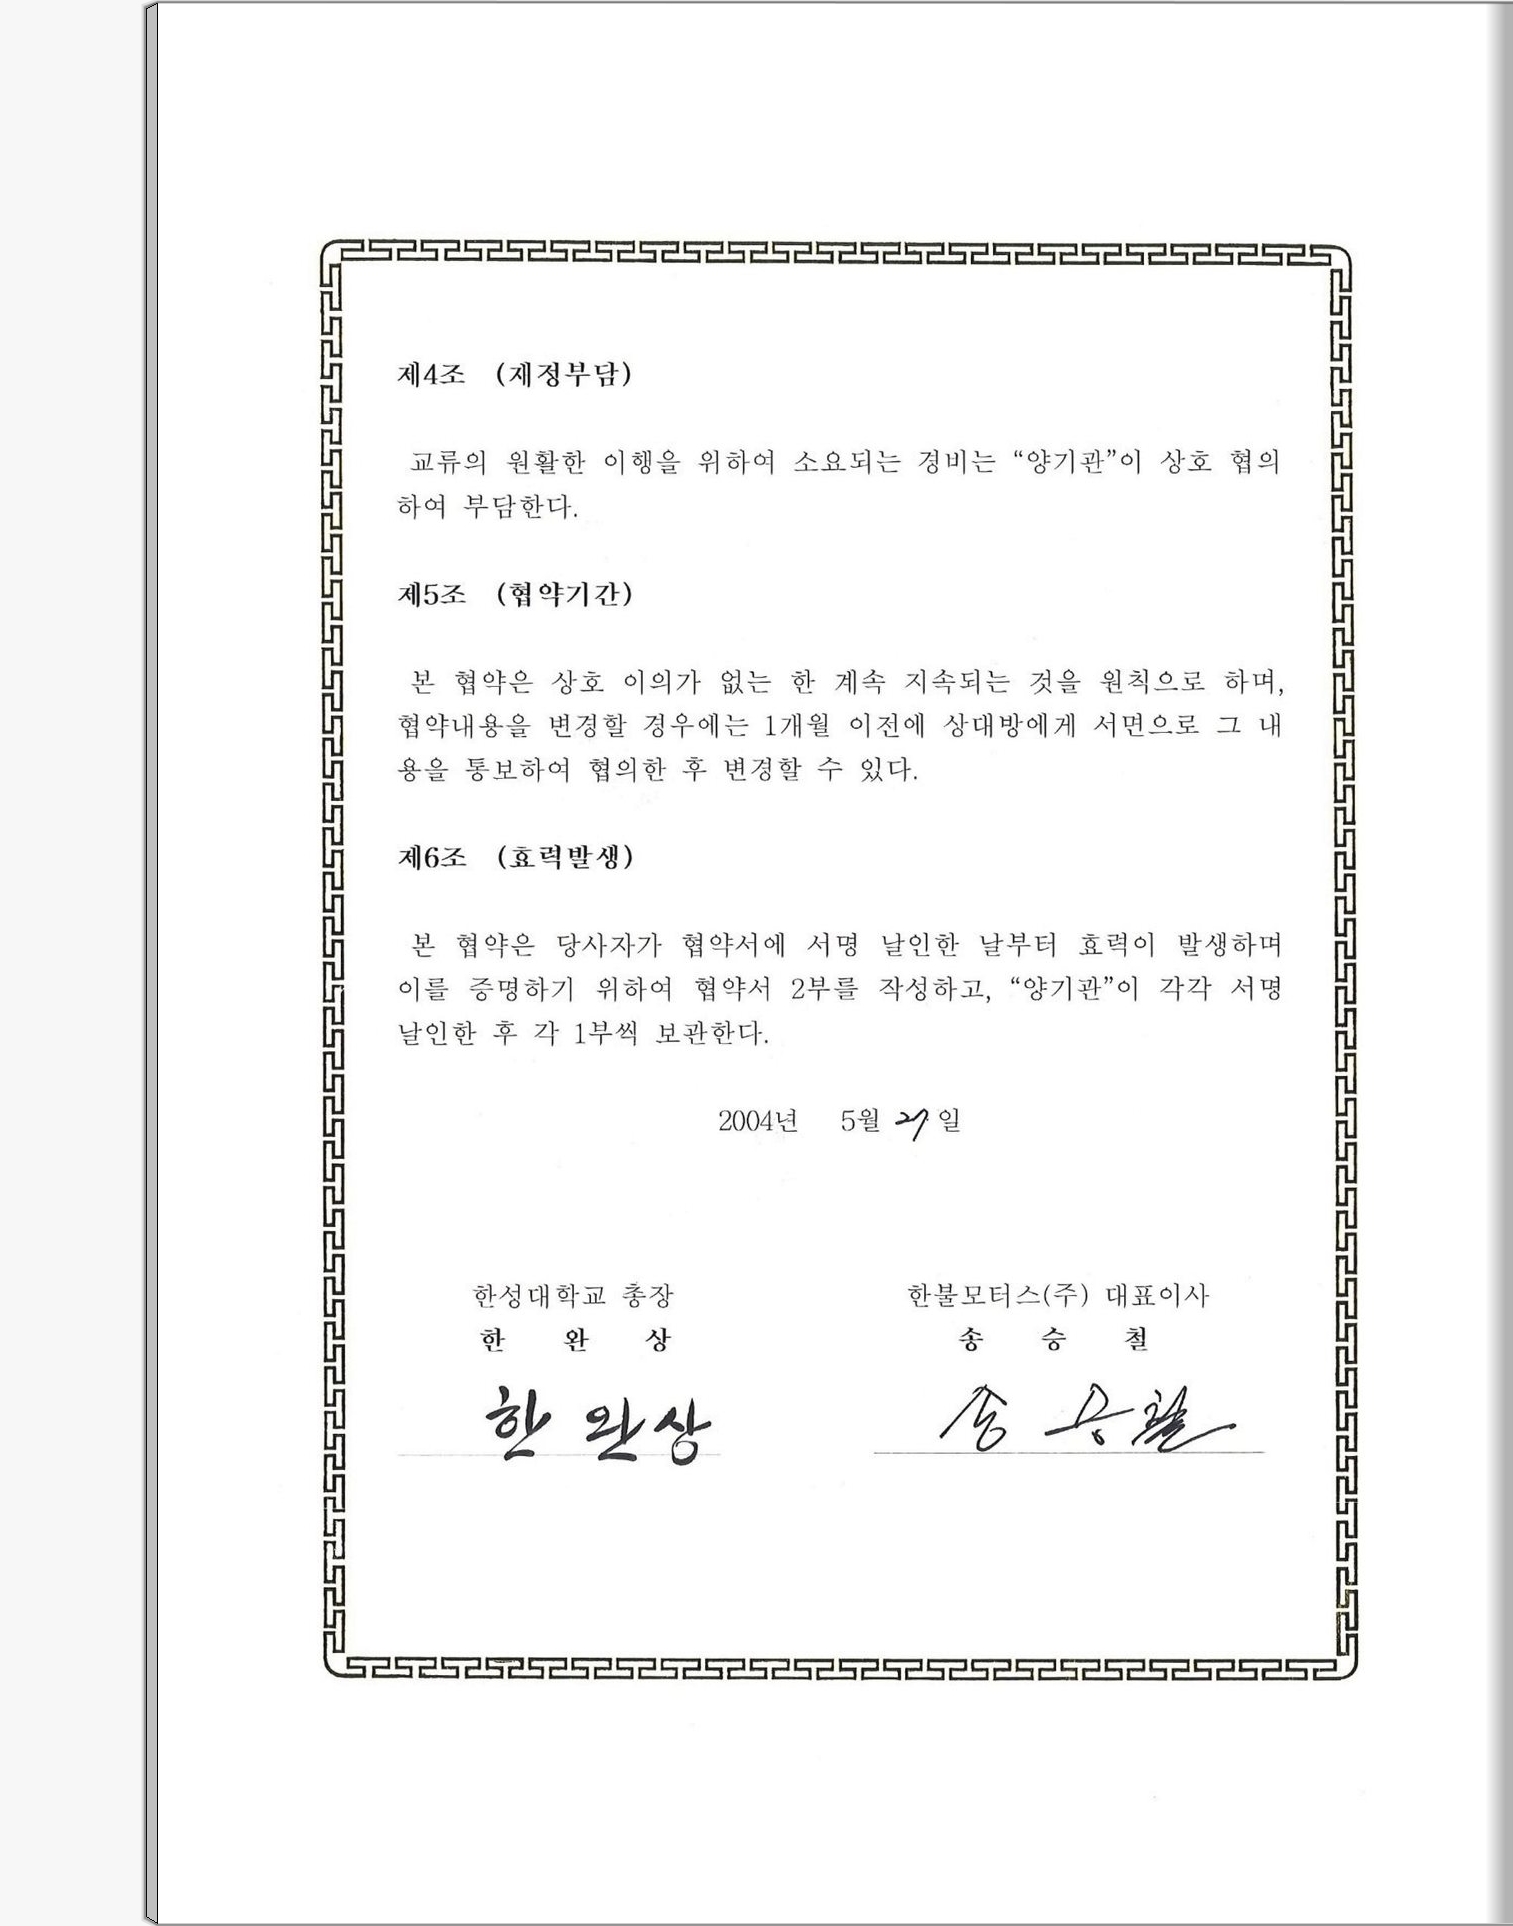 제4조 (재정부담)
교류의 원활한 이행을 위하여 소요되는 경비는 “양기관”이 상호 협의
하여 부담한다.
제5조 (협약기간)
본 협약은 상호 이의가 없는 한 계속 지속되는 것을 원칙으로 하며,
협약내용을 변경할 경우에는 1개월 이전에 상대방에게 서면으로 그 내
용을 통보하여 협의한 후 변경할 수 있다.
제6조 (효력발생)
본 협약은 당사자가 협약서에 서명 날인한 날부터 효력이 발생하며
이를 증명하기 위하여 협약서 2부를 작성하고, “양기관”이 각각 서명
날인한 후 각 1부씩 보관한다.
2004년 5월 27일
한성대학교 총장 한불모터스(주) 대표이사
한 완 상 송 승 철
한 완 상 송 승 철